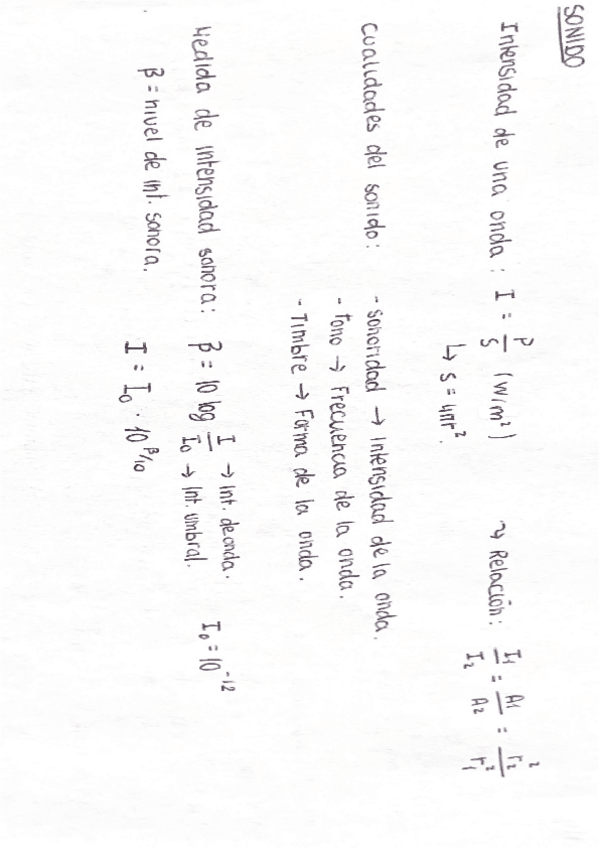 SONIDO
Intensidad de una onda : I = P/S (W/m²) ↝ Relación: I₁/I₂ = A₁/A₂ = r₂²/r₁²
↳ S = 4πr².
Cualidades del sonido: - Sonoridad → Intensidad de la onda.
- Tono → Frecuencia de la onda.
- Timbre → Forma de la onda.
Medida de intensidad sonora: β = 10 log I/I₀ → Int. de onda. → Int. umbral. I₀ = 10⁻¹²
β = nivel de int. sonora. I = I₀ · 10^β/10